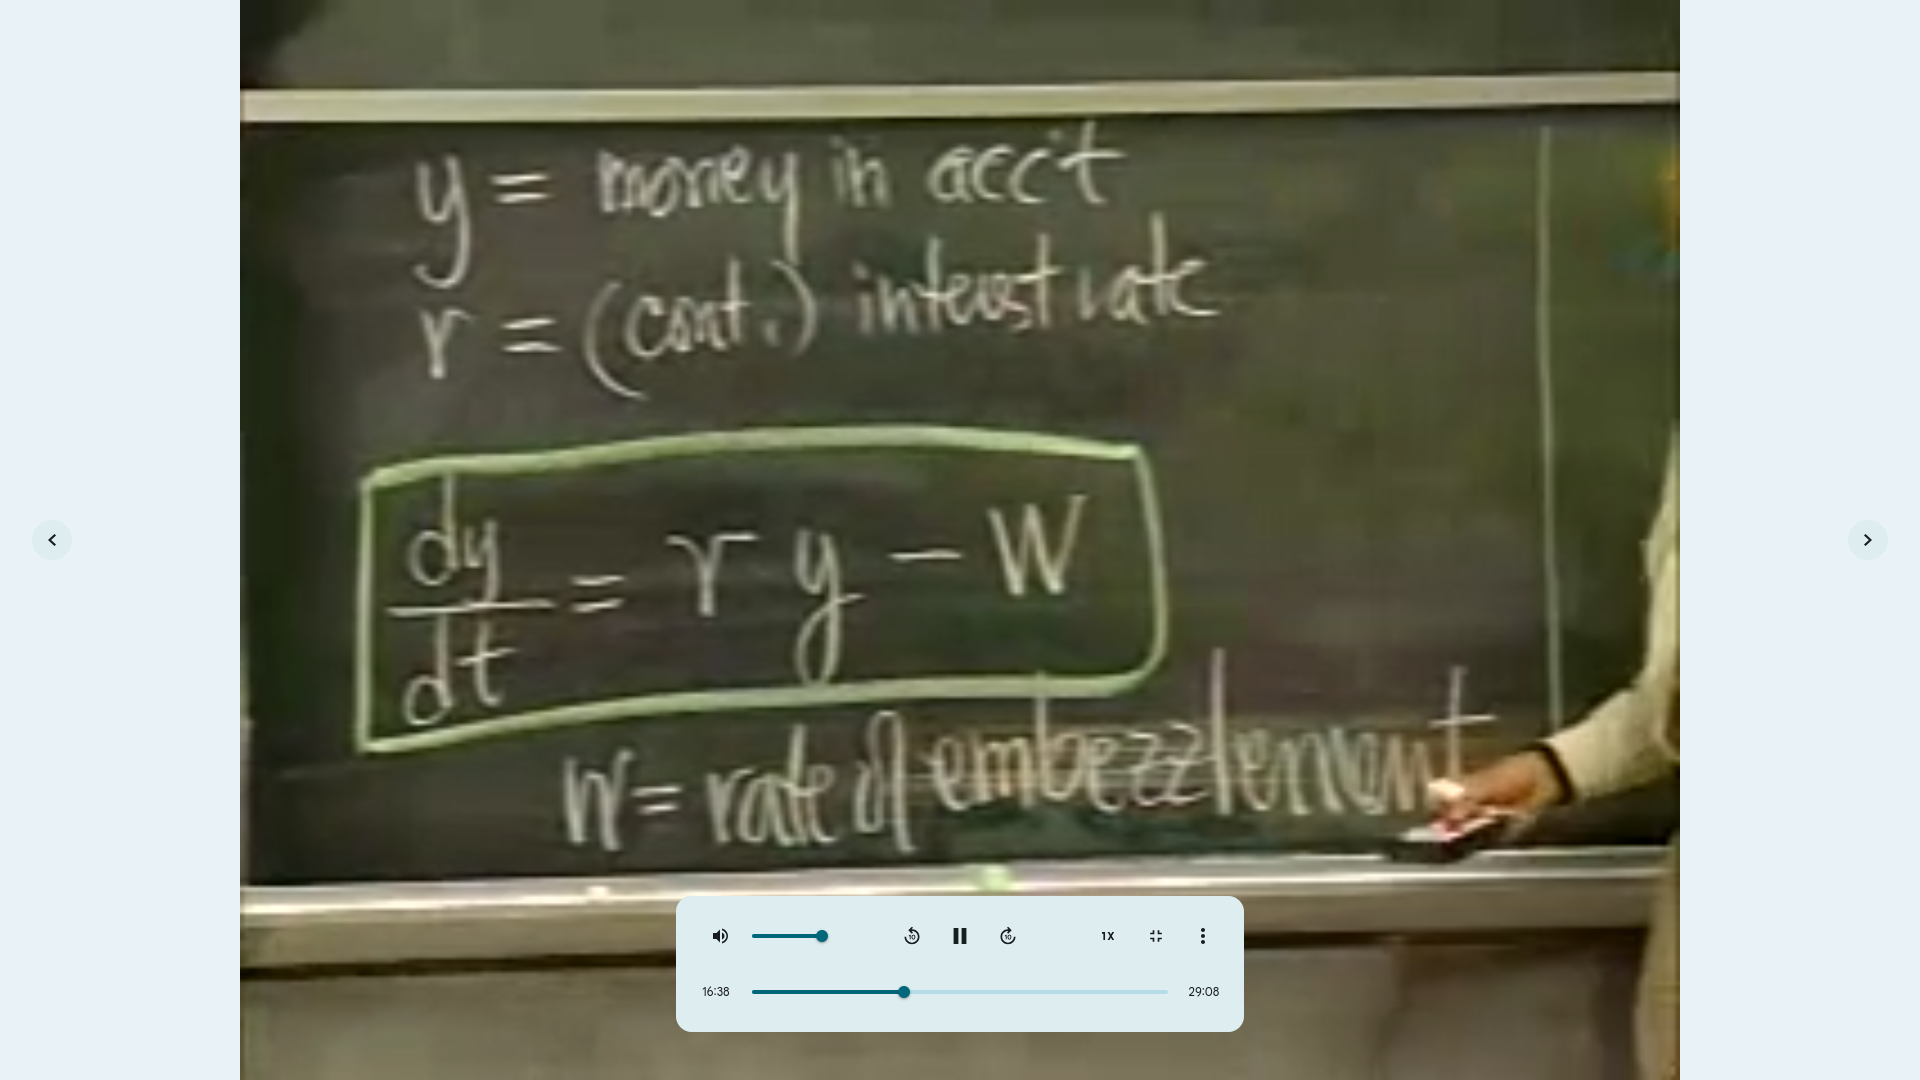 y = money in acc't
r = (cont.) interest rate
dy/dt = r y - W
W = rate of embezzlement
10
10
1X
16:38
29:08